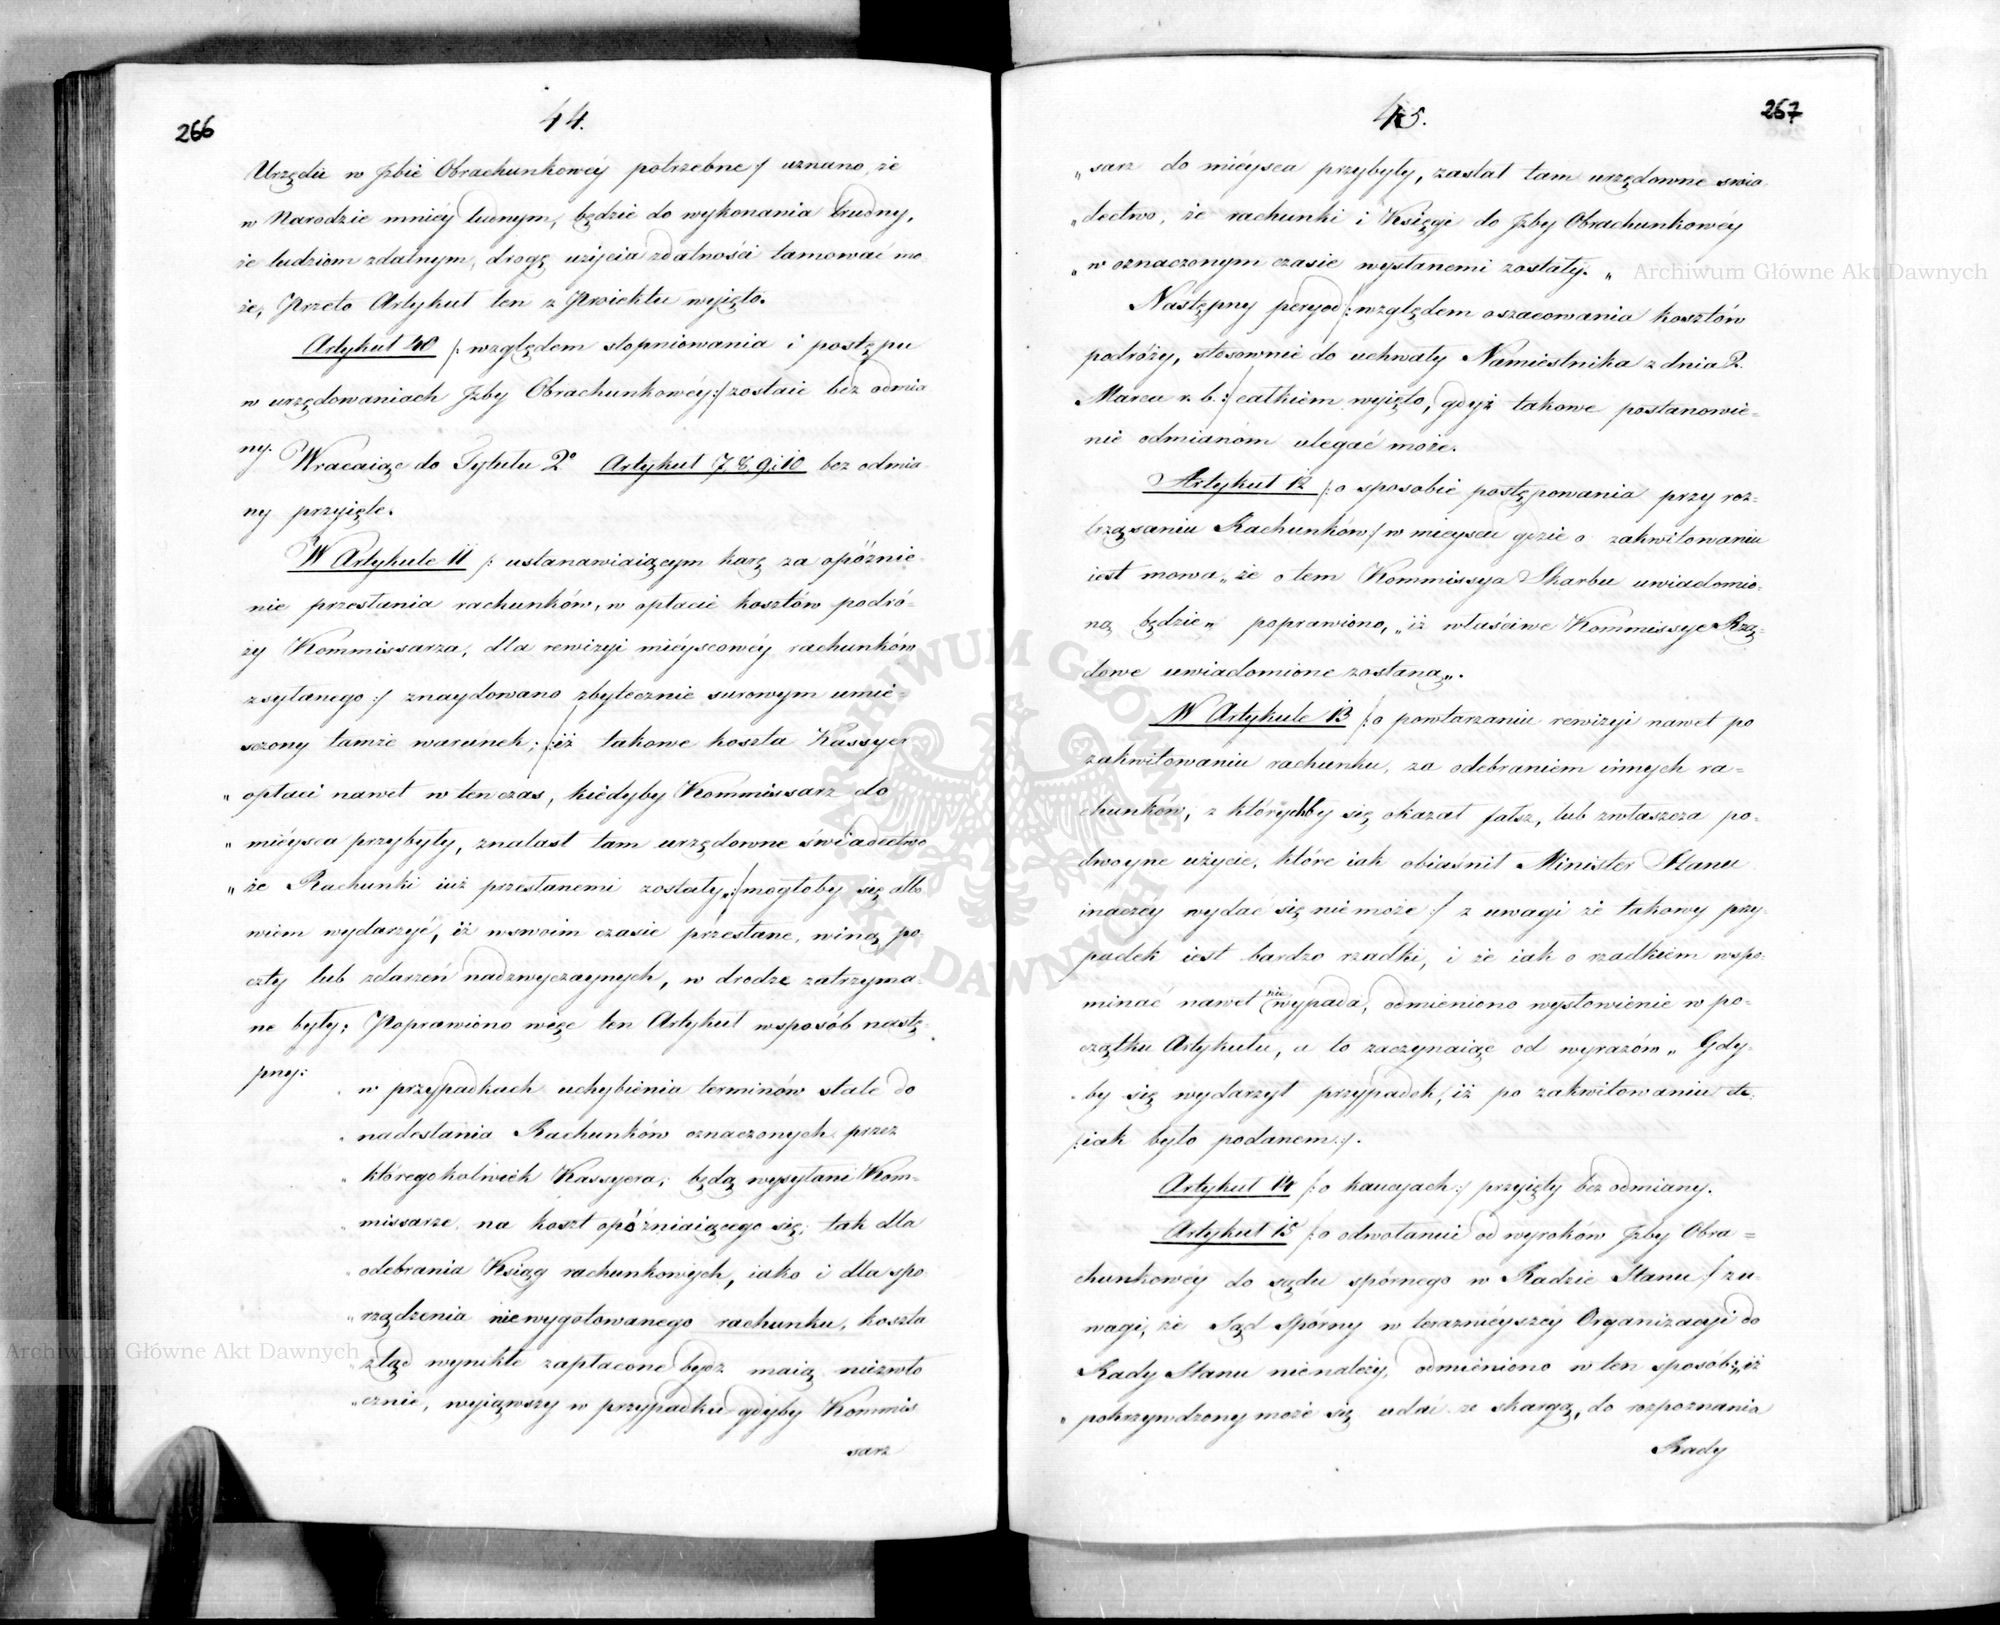 266
44.
Urzędu w Jzbie Obrachunkowéy potrzebne:/ uznano, że
w Narodzie mniéy ludnym, będzie do wykonania trudny,
że ludziom zdalnym, drogę użycia zdalności tamować mo-
że, Przeto Artykuł ten z Proiektu wyięto.
Artykuł 40 /: względem stopniowania i postępu
w urzędowaniach Jzby Obrachunkowéy:/ zostaie bez odmia
ny.
Wracaiąc do Tytułu 2° Artykuł 7, 8, 9, i 10 bez odmia-
ny przyięte.
W Artykule 11 /: ustanawiaiącym karę za opóźnie-
nie przesłania rachunków, w opłacie kosztów podró-
ży Kommissarza, dla rewizyi miéyscowéy rachunków
zsyłanego:/ znaydowano zbytecznie surowym umie-
sczony tamże warunek; /:iż takowe koszta Kassyer
„ opłaci nawet w ten czas, kiedyby Kommissarz do
„ miéysca przybyły, znalazł tam urzędowne świadectwo
„ że Rachunki iuż przesłanemi zostały„:/ mogłoby się albo
wiem wydarzyć, iż w swoim czasie przesłane, winą po-
czty lub zdarzeń nadzwyczaynych, w drodze zatrzyma-
ne były; Poprawiono więc ten Artykuł w sposób nastę-
pny:
„ w przypadkach uchybienia terminów stale do
„ nadesłania Rachunków oznaczonych przez
„ któregokolwiek Kassyera; będą wysyłani Kom-
„ missarze, na koszt opóźniaiącego się; tak dla
„ odebrania Ksiąg rachunkowych, iako i dla spo-
„ rządzenia niewygotowanego rachunku, koszta
„ ztąd wynikłe zapłacone bydź maią niezwło
„ cznie, wyiąwszy w przypadku gdyby Kommis
sarz
267
45.
„ sarz do miéysca przybyły, zastał tam urzędowne świa-
„ dectwo, że rachunki i Księgi do Jzby Obrachunkowéy
„ w oznaczonym czasie wysłanemi zostały. „
Następny peryod /: względem oszacowania kosztów
podróży, stosownie do uchwały Namiestnika z dnia 2.
Marca r. b.:/ całkiem wyięto, gdyż takowe postanowie-
nie odmianom ulegać może.
Artykuł 12 /: o sposobie postępowania przy roz-
trząsaniu Rachunków:/ w mieyscu gdzie o zakwitowaniu
iest mowa „ że o tem Kommissya Skarbu uwiadomio-
ną będzie„ poprawiono, „ iż właściwe Kommissye Rzą-
dowe uwiadomione zostaną„.
W Artykule 13 /: o powtarzaniu rewizyi nawet po
zakwitowaniu rachunku, za odebraniem innych ra-
chunków, z którychby się okazał fałsz, lub zwłaszcza po-
dwoyne użycie, które iak obiaśnił Minister Stanu
inaczéy wydać się nie może:/ z uwagi że takowy przy-
padek iest bardzo rzadki, i że iak o rzadkiém wspo-
minać nawet nie wypada, odmieniono wysłowienie w po-
czątku Artykułu, a to zaczynaiąc od wyrazów „ Gdy-
„ by się wydarzył przypadek, iż po zakwitowaniu etc.
/:iak było podanem:/.
Artykuł 14 /: o kaucyach:/ przyięty bez odmiany.
Artykuł 15 /: o odwołaniu od wyroków Jzby Obra=
chunkowéy do sądu spórnego w Radzie Stanu:/ z u-
wagi, że Sąd Spórny w teraźniéyszéy Organizacyi do
Rady Stanu nienależy, odmieniono w ten sposób; „ iż
„ pokrzywdzony może się udać ze skargą, do rozpoznania
Rady
Archiwum Główne Akt Dawnych
Archiwum Główne Akt Dawnych
ARCHIWUM GŁÓWNE AKT DAWNYCH